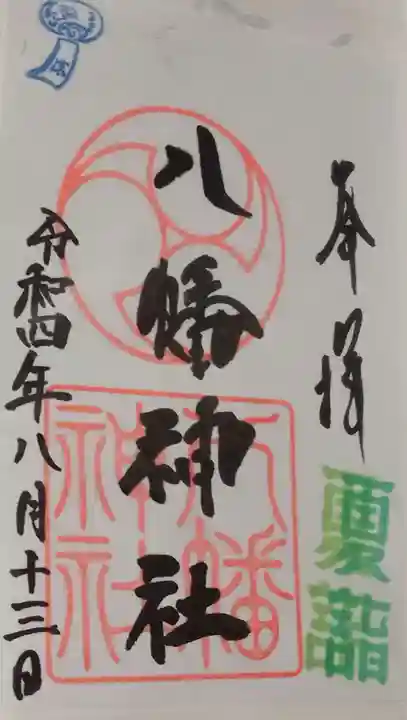 奉拝
夏詣
八幡神社
八幡神社
令和四年八月十三日